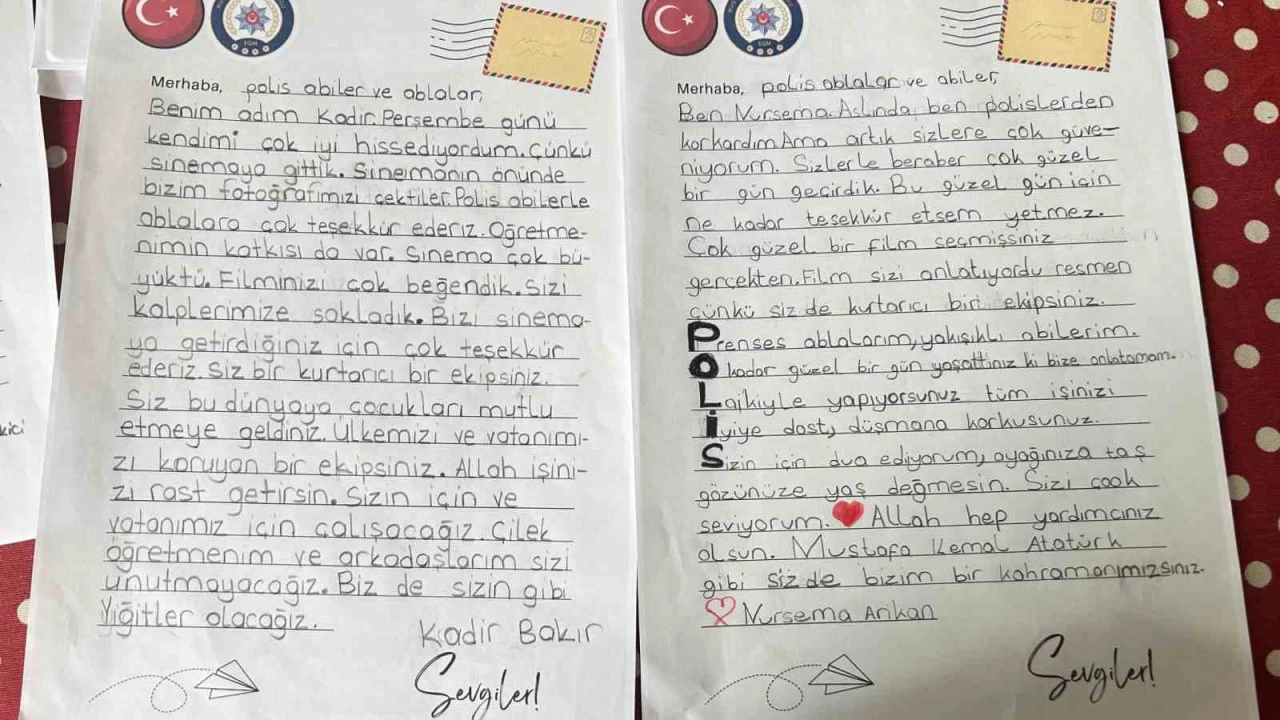 EGM
Merhaba, polis abiler ve ablalar,
Benim adım Kadir. Perşembe günü
kendimi çok iyi hissediyordum. Çünkü
sinemaya gittik. Sinemanın önünde
bizim fotoğrafımızı çektiler. Polis abilerle
ablalara çok teşekkür ederiz. Öğretme-
nimin katkısı da var. Sinema çok bü-
yüktü. Filminizi çok beğendik. Sizi
kalplerimize sakladık. Bizi sinema-
ya getirdiğiniz için çok teşekkür
ederiz. Siz bir kurtarıcı bir ekipsiniz.
Siz bu dünyaya çocukları mutlu
etmeye geldiniz. Ülkemizi ve vatanımı-
zı koruyan bir ekipsiniz. Allah işini-
zi rast getirsin. Sizin için ve
vatanımız için çalışacağız. Çilek
öğretmenim ve arkadaşlarım sizi
unutmayacağız. Biz de sizin gibi
yiğitler olacağız.
Kadir Bakır
Sevgiler!
EGM
Merhaba, polis ablalar ve abiler,
Ben Nursema. Aslında ben polislerden
korkardım. Ama artık sizlere çok güve-
niyorum. Sizlerle beraber çok güzel
bir gün geçirdik. Bu güzel gün için
ne kadar teşekkür etsem yetmez.
Çok güzel bir film seçmişsiniz
gerçekten. Film sizi anlatıyordu resmen
çünkü siz de kurtarıcı bir ekipsiniz.
Prenses ablalarım, yakışıklı abilerim.
O kadar güzel bir gün yaşattınız ki bize anlatamam.
Laikiyle yapıyorsunuz tüm işinizi
İyiye dost, düşmana korkusunuz.
Sizin için dua ediyorum, ayağınıza taş
gözünüze yaş değmesin. Sizi çook
seviyorum. Allah hep yardımcınız
olsun. Mustafa Kemal Atatürk
gibi siz de bizim bir kahramanımızsınız.
Nursema Arıkan
Sevgiler!
kici